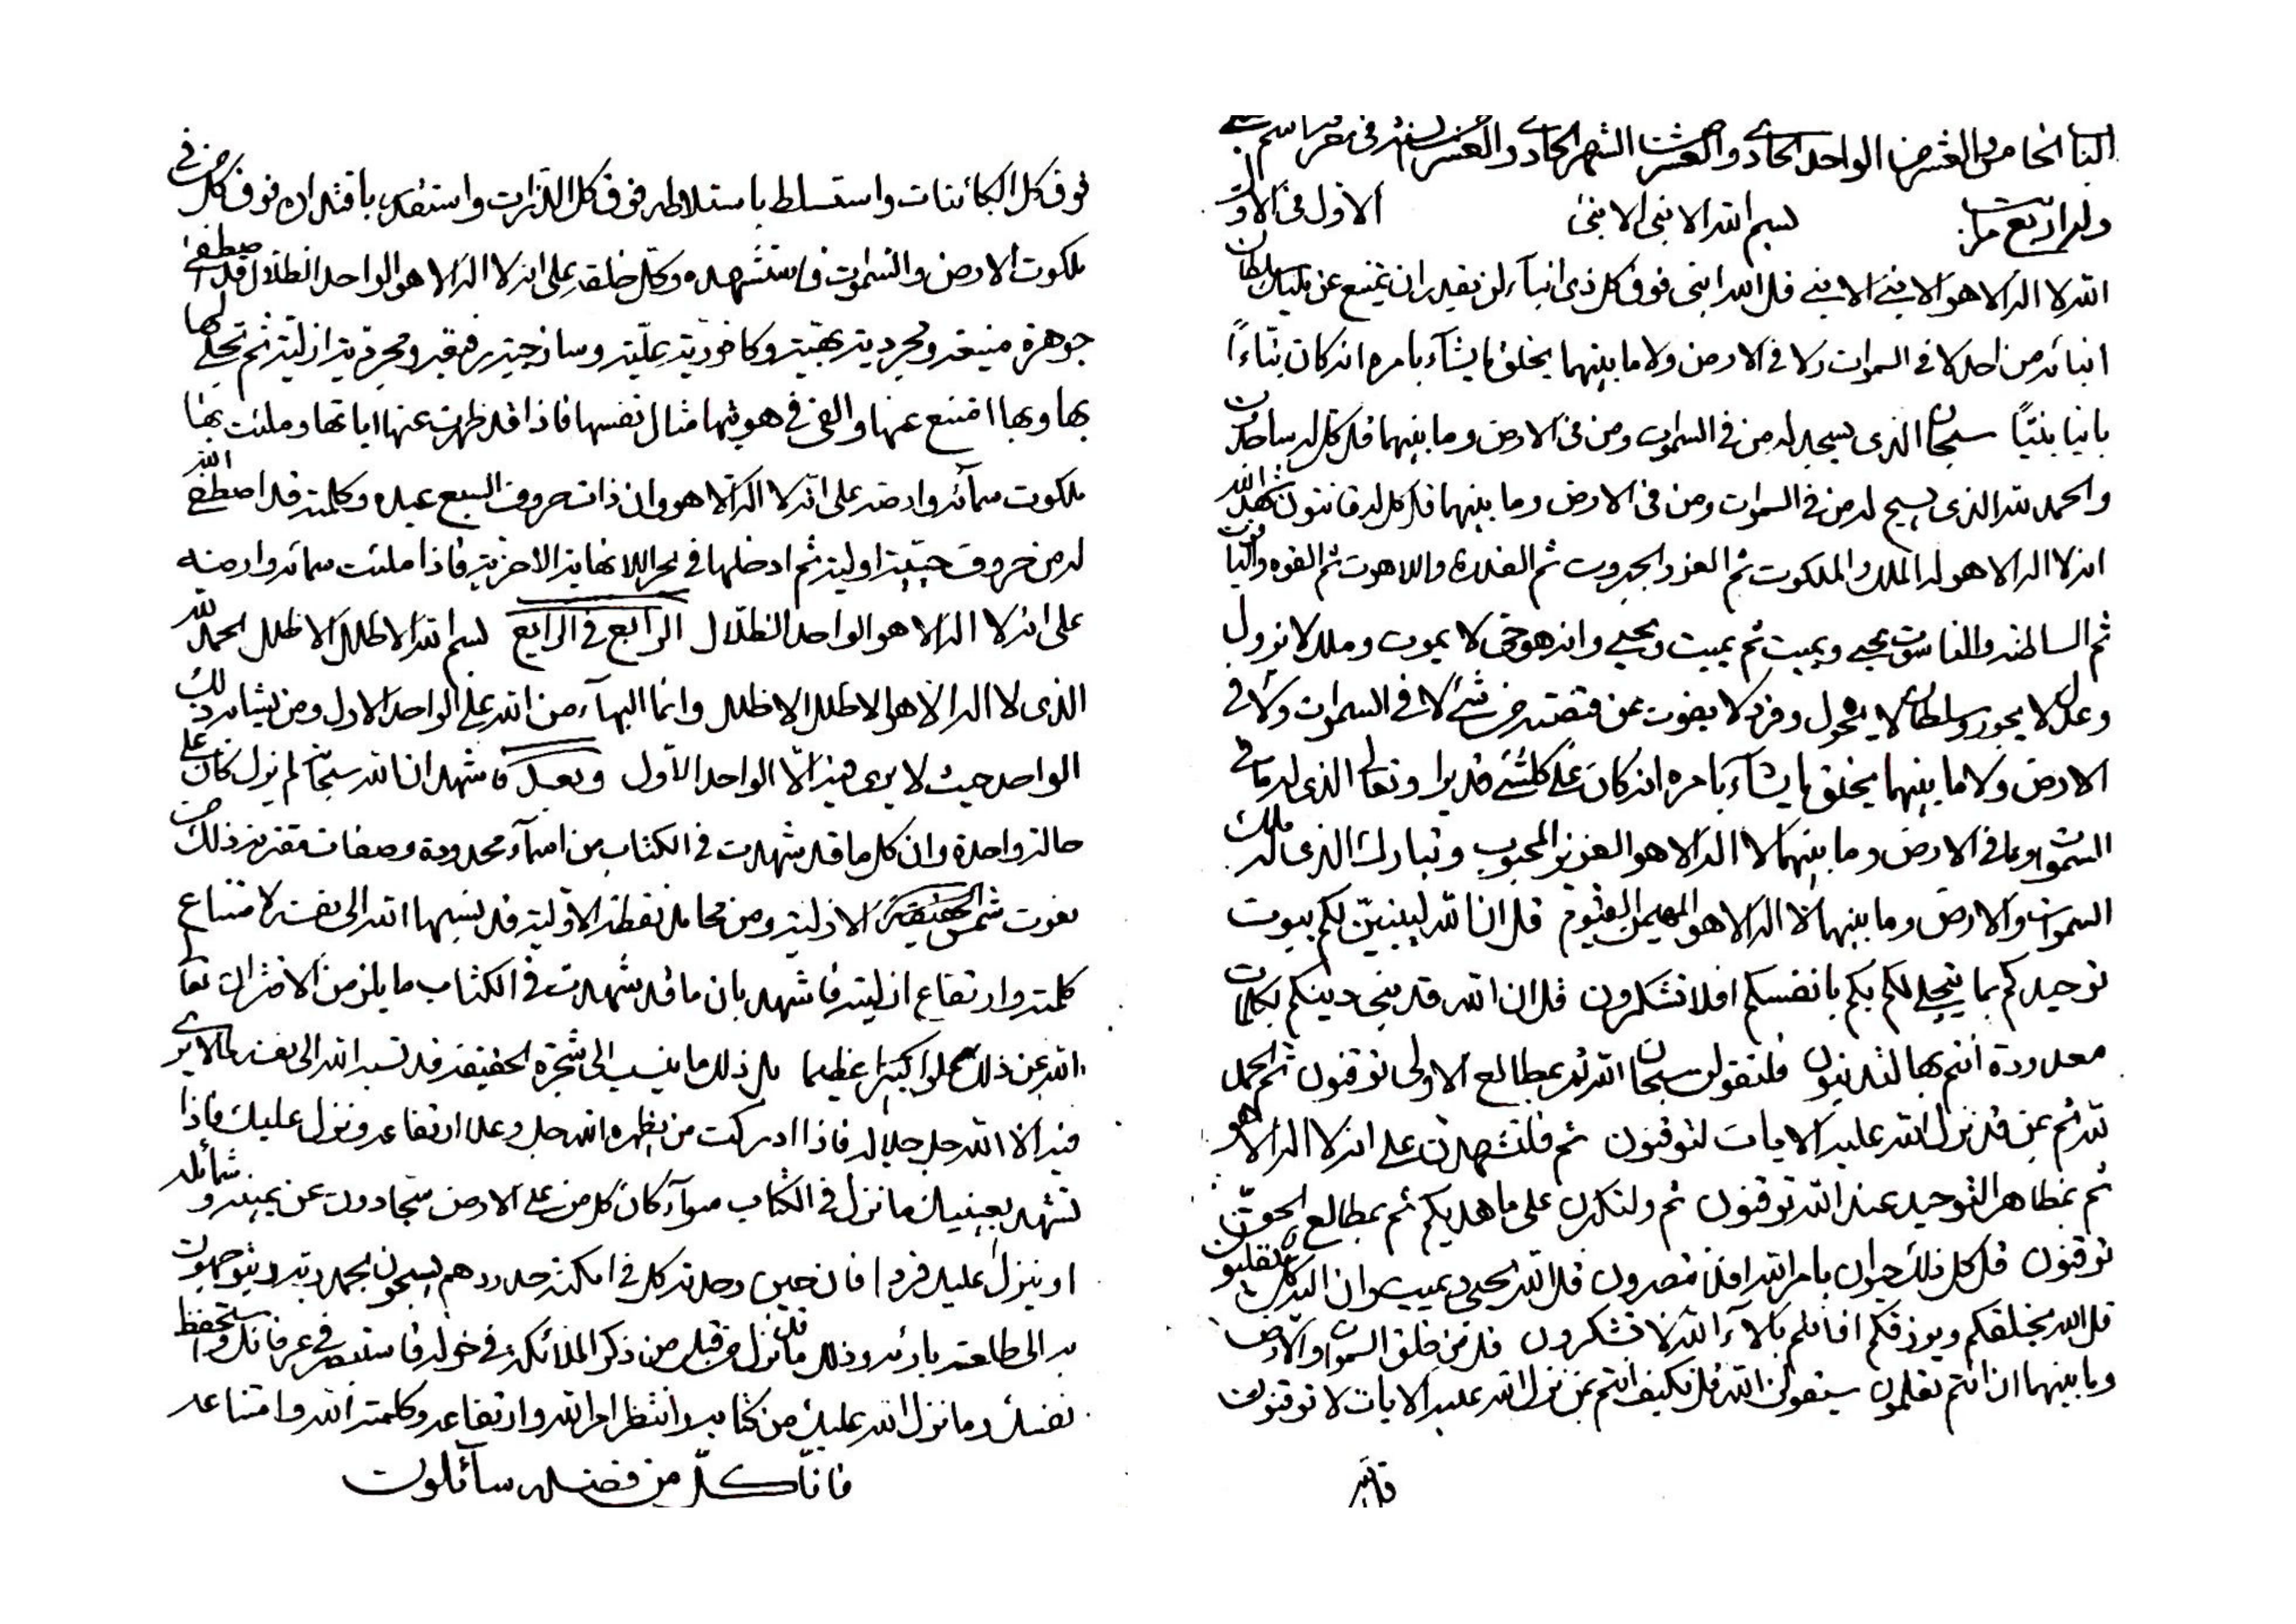 الباب الخامس والعشر من الواحد الحادي والعشر من الشهر الحادي والعشر من السنة في معرفة اسم
وله اربع مراتب بسم الله الابنى الابنى الاول في الاول
الله لا اله الا هو الابنى الابنى قل الله ابنى فوق كل ذي ابناء لن يقدر ان يمتنع عن مليك سلطان
ابنائه من احد لا في السموات ولا في الارض ولا ما بينهما يخلق ما يشاء بامره انه كان بناءا
بانيا بنيا سبحان الذي يسجد له من في السموات ومن في الارض وما بينهما قل كل له ساجدون
والحمد لله الذي يسبح له من في السموات ومن في الارض وما بينهما قل كل له قانتون شهد الله
انه لا اله الا هو له الملك والملكوت ثم العز والجبروت ثم القدرة واللاهوت ثم القوة والياقوت
ثم السلطنة والناسوت يحيي ويميت ثم يميت ويحيي وانه هو حي لا يموت وملك لا يزول
وعدل لا يجور وسلطان لا يحول وفرد لا يفوت عن قبضته من شيء لا في السموات ولا في
الارض ولا ما بينهما يخلق ما يشاء بامره انه كان على كلشيء قديرا وتعالى الذي له ما في
السموات وما في الارض وما بينهما لا اله الا هو العزيز المحبوب وتبارك الذي له ملك
السموات والارض وما بينهما لا اله الا هو المهيمن القيوم قل انا لله ليبنين لكم بيوت
توحيدكم بما يتجلى لكم بكم بانفسكم افلا تشكرون قل ان الله قد بنى دينكم بكلمات
معدودة انتم بها لتدينون فلتقولن سبحان الله ثم بمطالع الاولى توقنون ثم الحمد
لله ثم بمن قد نزل الله عليه الايات لتوقنون ثم فلتشهدن على انه لا اله الا هو
ثم بمظاهر التوحيد عند الله توقنون ثم ولتكبرن على ما هديكم ثم بمطالع الحق
توقنون قل كل ذلك حيوان بامر الله افلا تبصرون قل الله يحيي ويميت وان اليه كل لتقلبون
قل الله يخلقكم ويرزقكم افانتم بالاء الله لا تشكرون قل من خلق السموات والارض
وما بينهما ان انتم تعلمون سيقولن الله قل فكيف انتم بمن نزل الله عليه الايات لا توقنون
فوق كل الكائنات واستسلط باستلاطه فوق كل الذرات واستقدر باقتداره فوق كل من في
ملكوت الارض والسموات فاستشهده وكل خلقه على انه لا اله الا هو الواحد الظلال قد اصطفى
جوهرة منيعة ومجردية بهية وكافورية علية وساذجية رفيعة ومجردية ازلية ثم تجلى لها
بها وبها امتنع عنها والقى في هويتها مثال نفسها فاذا قد ظهرت عنها اياتها وملئت بها
ملكوت سمائه وارضه على انه لا اله الا هو وان ذات حروف السبع عبده وكلمته قد اصطفى الله
له من حروف حيية اولية ثم ادخلها في بحر اللانهاية الاخرية فاذا ملئت سمائه وارضه
على انه لا اله الا هو الواحد الظلال الرابع في الرابع بسم الله الاظلل الاظلل الحمد لله
الذي لا اله الا هو الاظلل الاظلل وانما البهاء من الله على الواحد الاول ومن يشابه ذلك
الواحد حيث لا يرى فيه الا الواحد الاول وبعد فاشهد انا لله سبحانه لم يزل كان على
حالة واحدة وان كل ما قد شهدت في الكتاب من اسماء محدودة وصفات مقترنة ذلك من
نعوت شمس الحقيقة الازلية ومن محامد نقطة الاولية قد نسبها الله الى نفسه لامتناع
كلمته وارتفاع ازليته فاشهد بان ما قد شهدت في الكتاب ما يلزمن الاقتران تعالى
الله عن ذلك علوا كبيرا عظيما بل ذلك ما ينسب الى شجرة الحقيقة قد نسبه الله الى نفسه لما لا يرى
فيه الا الله جل جلاله فاذا ادركت من يظهره الله جل وعلا ارتفاعه ونزل عليك فاذا
تشهد بعينيك ما نزل في الكتاب سواء كان كل من على الارض سجادون عن يمينه وشمائله
او ينزل عليه فردا فان حين وحدته كل في امكنة حدودهم يسبحون بحمد ربه ويتوجهون
به الى طلعته بارئه وذلك ما قد نزل من قبل من ذكر الملائكة في حوله فاستبصر في عرفانك واستحفظ
نفسك وما نزل الله عليك من كتابه وانتظر امر الله وارتفاعه وكلمة الله وامتناعه
فانا كل من فضله سآئلون